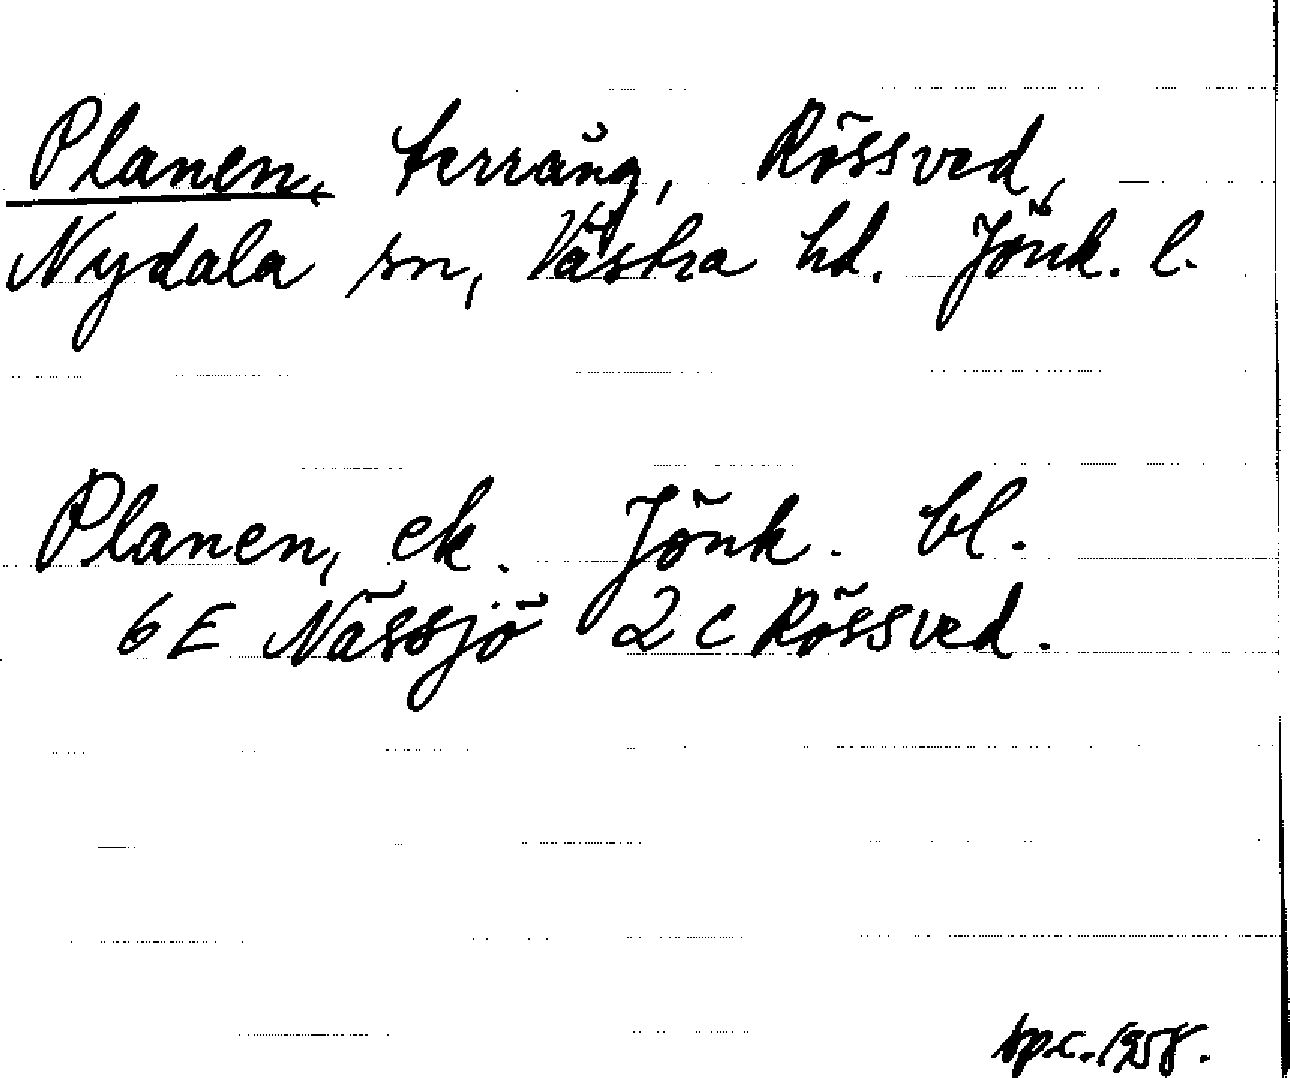 Planen, terräng, Rössved,
Nydala sn, Västra hd. Jönk. l.
Planen, ek. Jönk. bl.
6 E Nässjö 2 c Rössved.
1958.